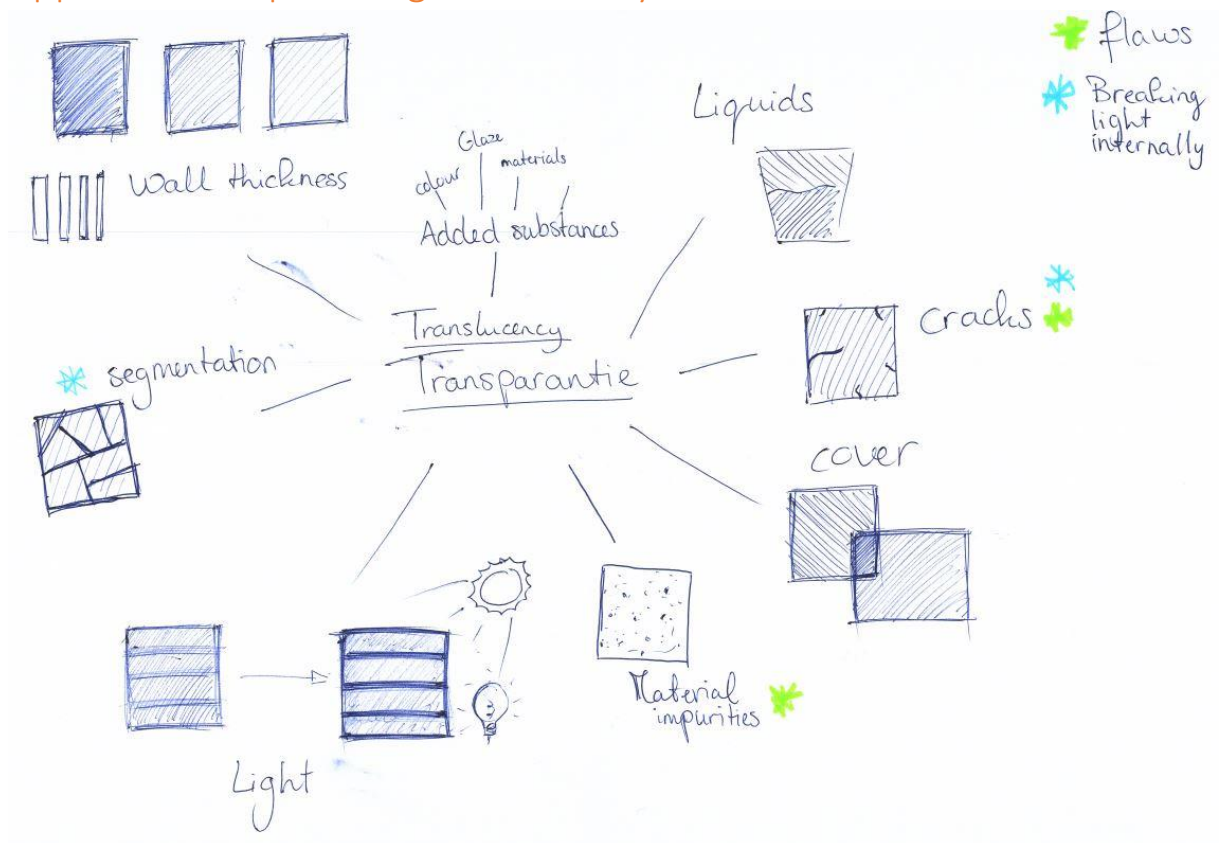 flaws
Breaking
light
internally
Liquids
Glaze
colour
materials
Added substances
Wall thickness
Translucency
Transparantie
segmentation
cracks
cover
Material
impurities
Light